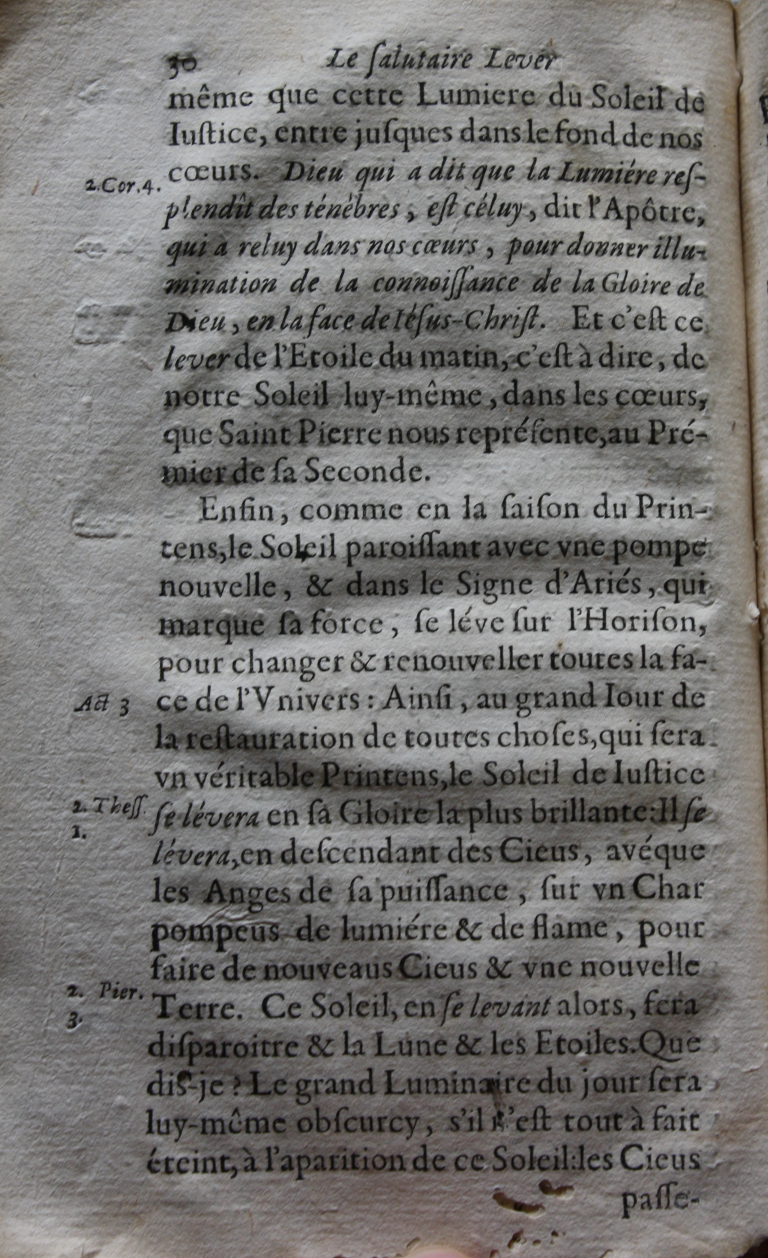 30 Le ſalutaire Lever
même que cette Lumiere du Soleil de
Iuſtice, entre juſques dans le fond de nos
2.Cor.4. cœurs. Dieu qui a dit que la Lumiére reſ-
plendît des ténèbres, eſt céluy, dit l'Apôtre,
qui a reluy dans nos cœurs, pour donner illu-
mination de la connoiſſance de la Gloire de
Dieu, en la face de Iéſus-Chriſt. Et c'eſt ce
lever de l'Etoile du matin, c'eſt à dire, de
notre Soleil luy-même, dans les cœurs,
que Saint Pierre nous repréſente, au Pré-
mier de ſa Seconde.
Enfin, comme en la ſaiſon du Prin-
tens, le Soleil paroiſſant avec vne pompe
nouvelle, & dans le Signe d'Ariés, qui
marque ſa force, ſe léve ſur l'Horiſon,
pour changer & renouveller toutes la fa-
Act 3 ce de l'Vnivers : Ainſi, au grand Iour de
la reſtauration de toutes choſes, qui ſera
vn véritable Printens, le Soleil de Iuſtice
2. Theſſ ſe lévera en ſa Gloire la plus brillante: Il ſe
1. lévera, en deſcendant des Cieus, avéque
les Anges de ſa puiſſance, ſur vn Char
pompeus de lumiére & de flame, pour
faire de nouveaus Cieus & vne nouvelle
2. Pier. Terre. Ce Soleil, en ſe levant alors, fera
3. diſparoitre & la Lune & les Etoiles. Que
diſ-je ? Le grand Luminaire du jour ſera
luy-même obſcurcy, s'il n'eſt tout à fait
éteint, à l'aparition de ce Soleil: les Cieus
paſſe-